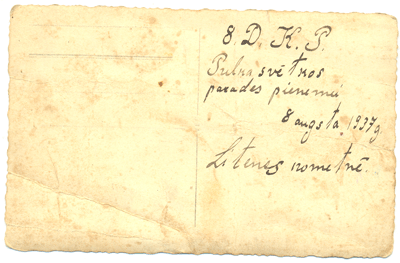 8. D. K. P.
Pulka svētkos
parādes pieņemu
8 augstā, 1937g.
Litenes nometnē.